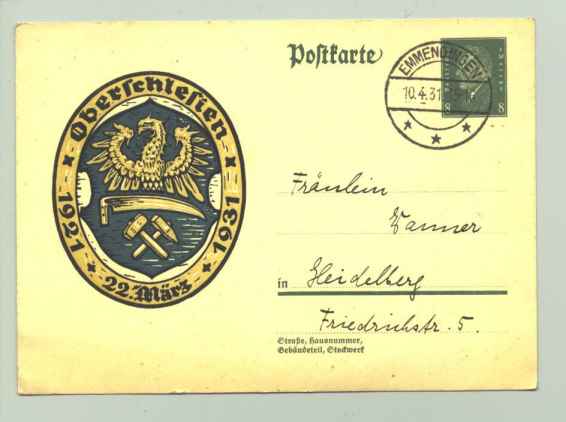 Oberschlesien
1921
1931
22. März
Postkarte
EMMENDINGEN
10.4.31
8
8
Fräulein
Wanner
in Heidelberg
Friedrichstr. 5.
Straße, Hausnummer,
Gebäudeteil, Stockwerk